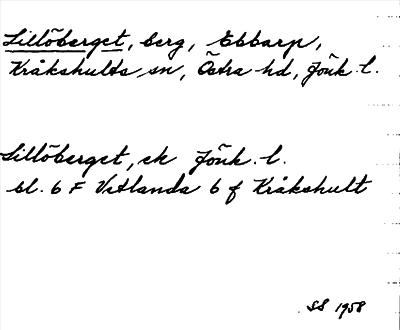 Lillöberget, berg, Ebbarp,
Kråkshults sn, Östra hd, Jönk. l.
Lillöberget, ek Jönk. l.
bl. 6 F Vetlanda 6 f Kråkshult
SS 1958